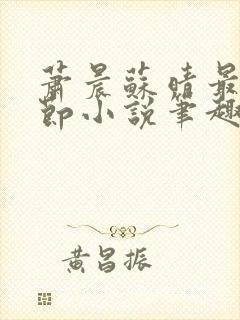 蕭晨蘇晴最
節小說筆趣
黃昌振